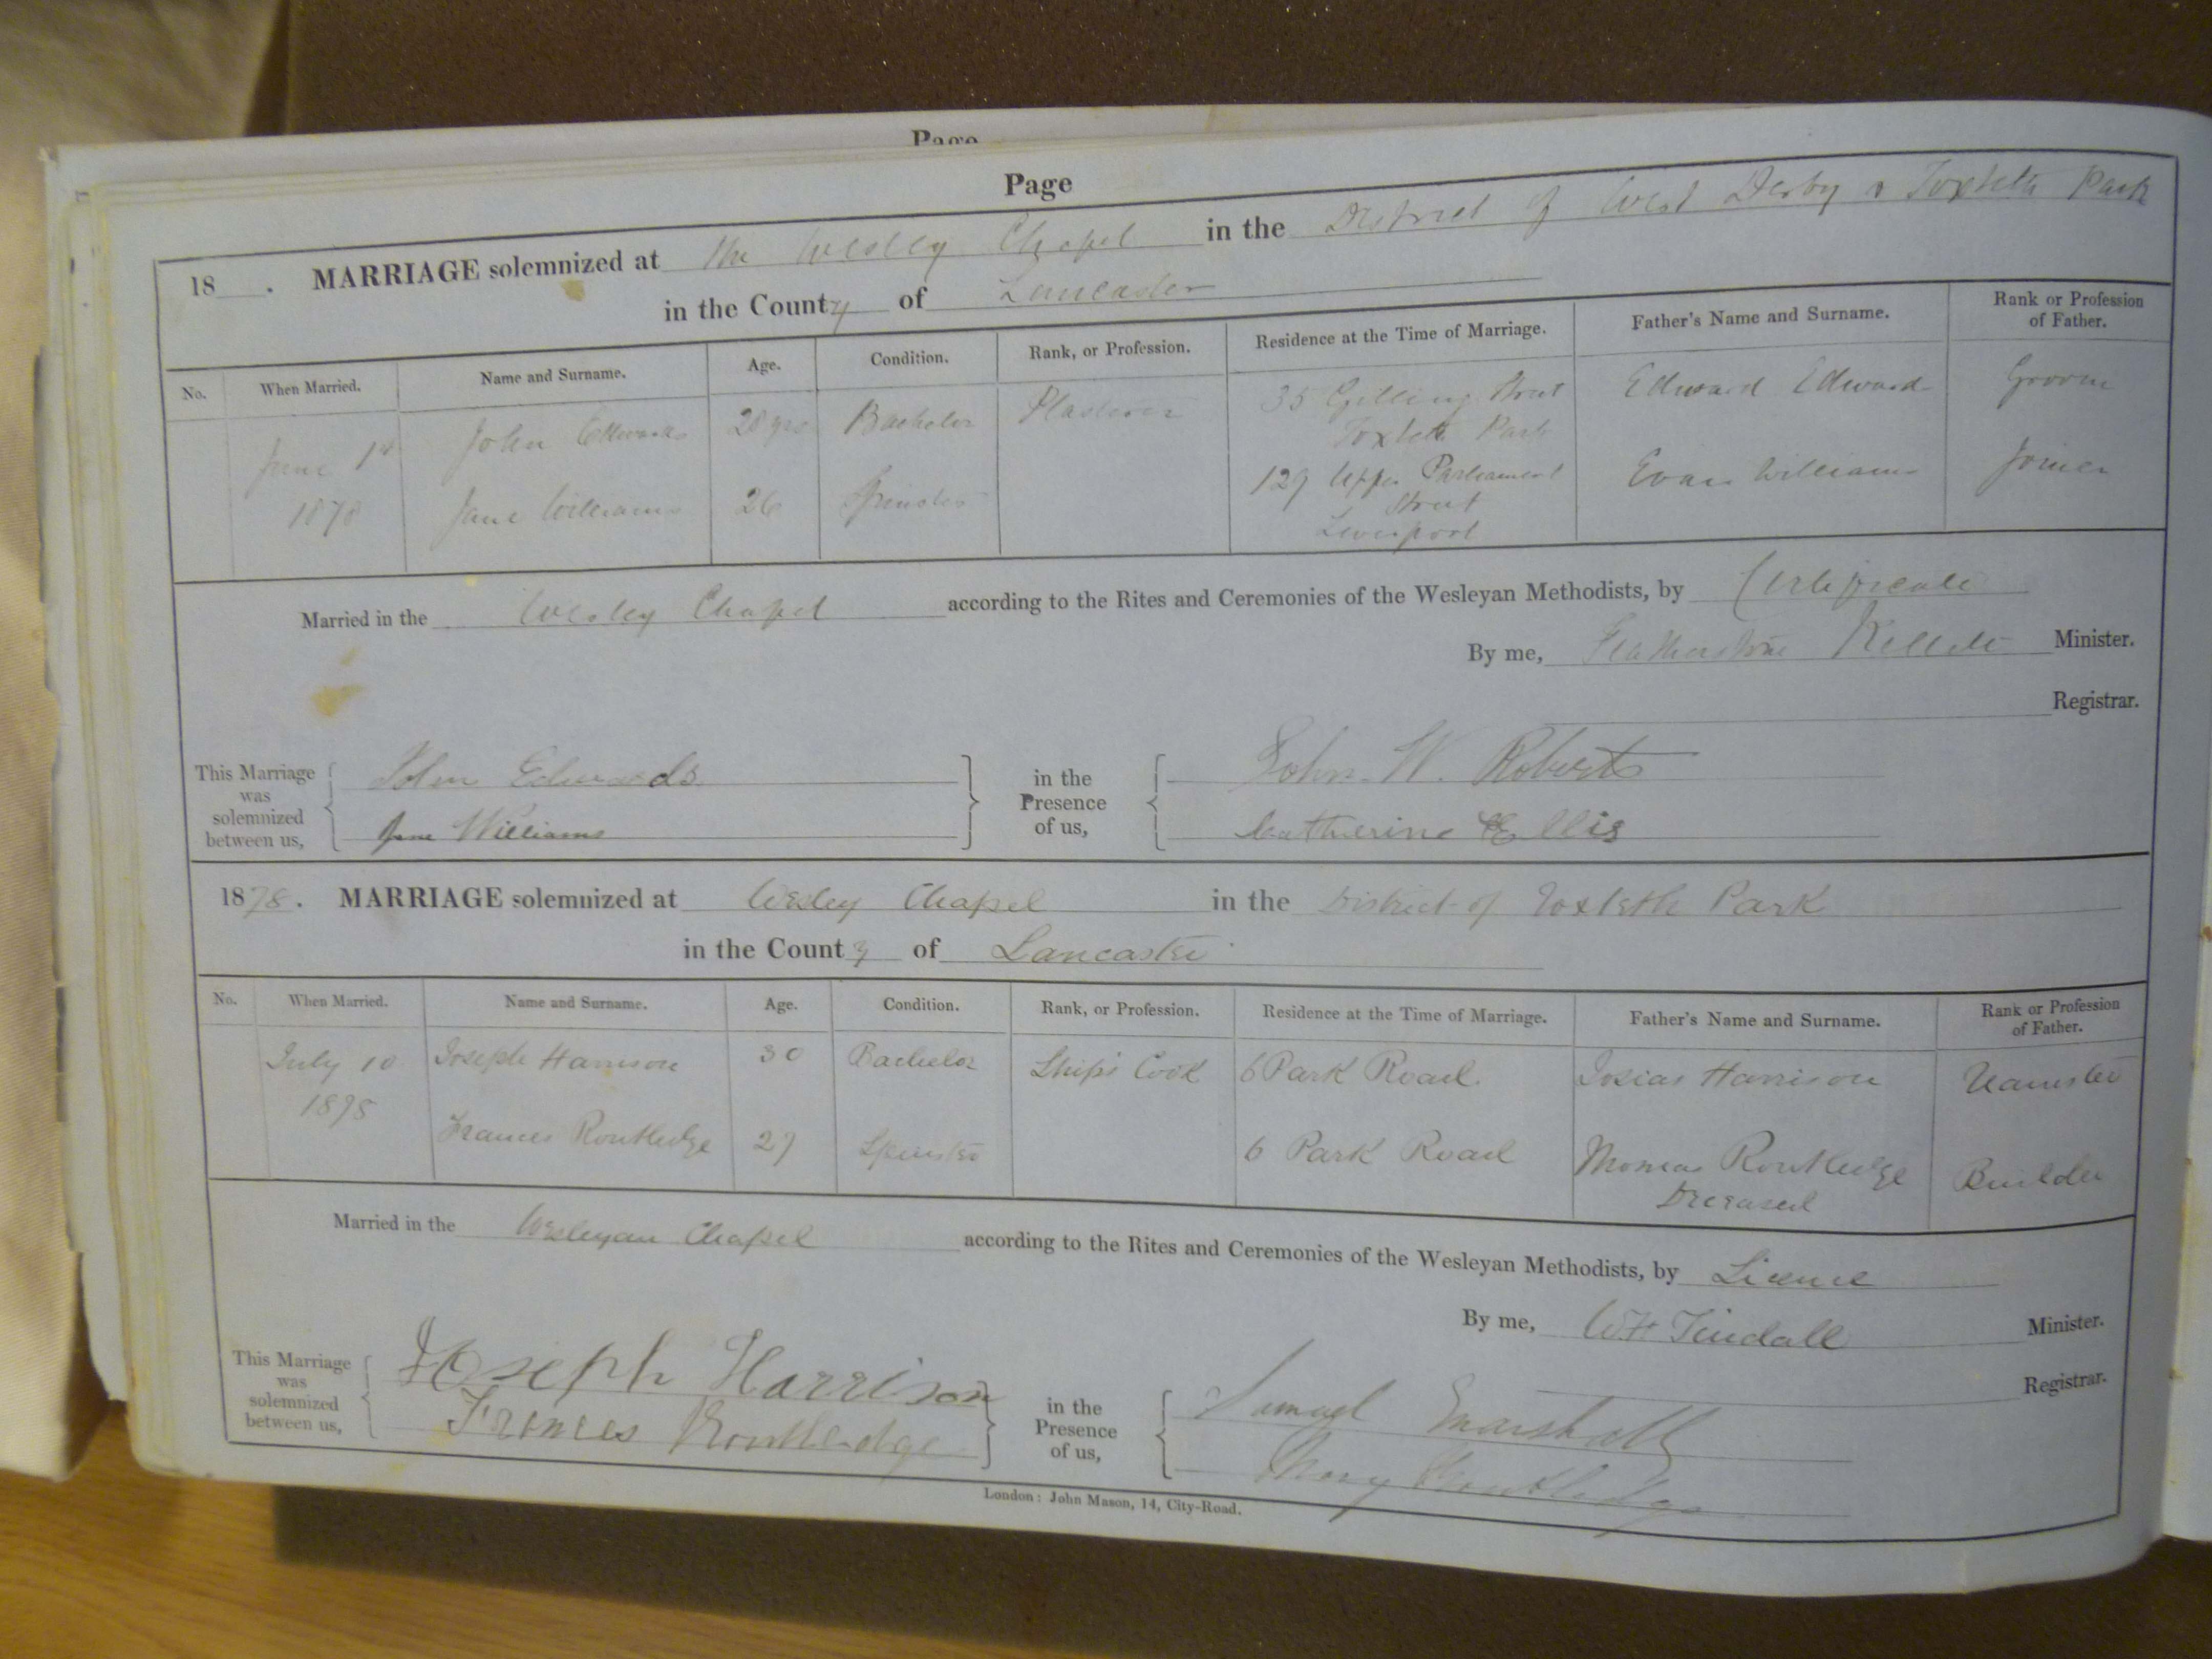 Page
Page
18 . MARRIAGE solemnized at The Wesley Chapel in the District of West Derby & Toxteth Park
in the County of Lancaster
No. When Married. Name and Surname. Age. Condition. Rank, or Profession. Residence at the Time of Marriage. Father's Name and Surname. Rank or Profession of Father.
June 1st 1878 John Edwards 28 yrs Bachelor Plasterer 35 Street Toxteth Park Edward Edwards Groom
Jane Williams 26 Spinster 129 Upper Parliament Street Liverpool Evan Williams Joiner
Married in the Wesley Chapel according to the Rites and Ceremonies of the Wesleyan Methodists, by Certificate
By me, Featherstone Kellett Minister.
Registrar.
This Marriage was solemnized between us, John Edwards Jane Williams in the Presence of us, John. W. Roberts Catherine Ellis
1878. MARRIAGE solemnized at Wesley Chapel in the District of Toxteth Park
in the County of Lancaster
No. When Married. Name and Surname. Age. Condition. Rank, or Profession. Residence at the Time of Marriage. Father's Name and Surname. Rank or Profession of Father.
July 10 1878 Joseph Harrison 30 Bachelor Ships Cook 6 Park Road. Josias Harrison
Frances Routledge 27 Spinster 6 Park Road Thomas Routledge Deceased Builder
Married in the Wesleyan Chapel according to the Rites and Ceremonies of the Wesleyan Methodists, by Licence
By me, W H Tindall Minister.
Registrar.
This Marriage was solemnized between us, Joseph Harrison Frances Routledge in the Presence of us, Samuel Marshall Mary Routledge
London: John Mason, 14, City-Road.